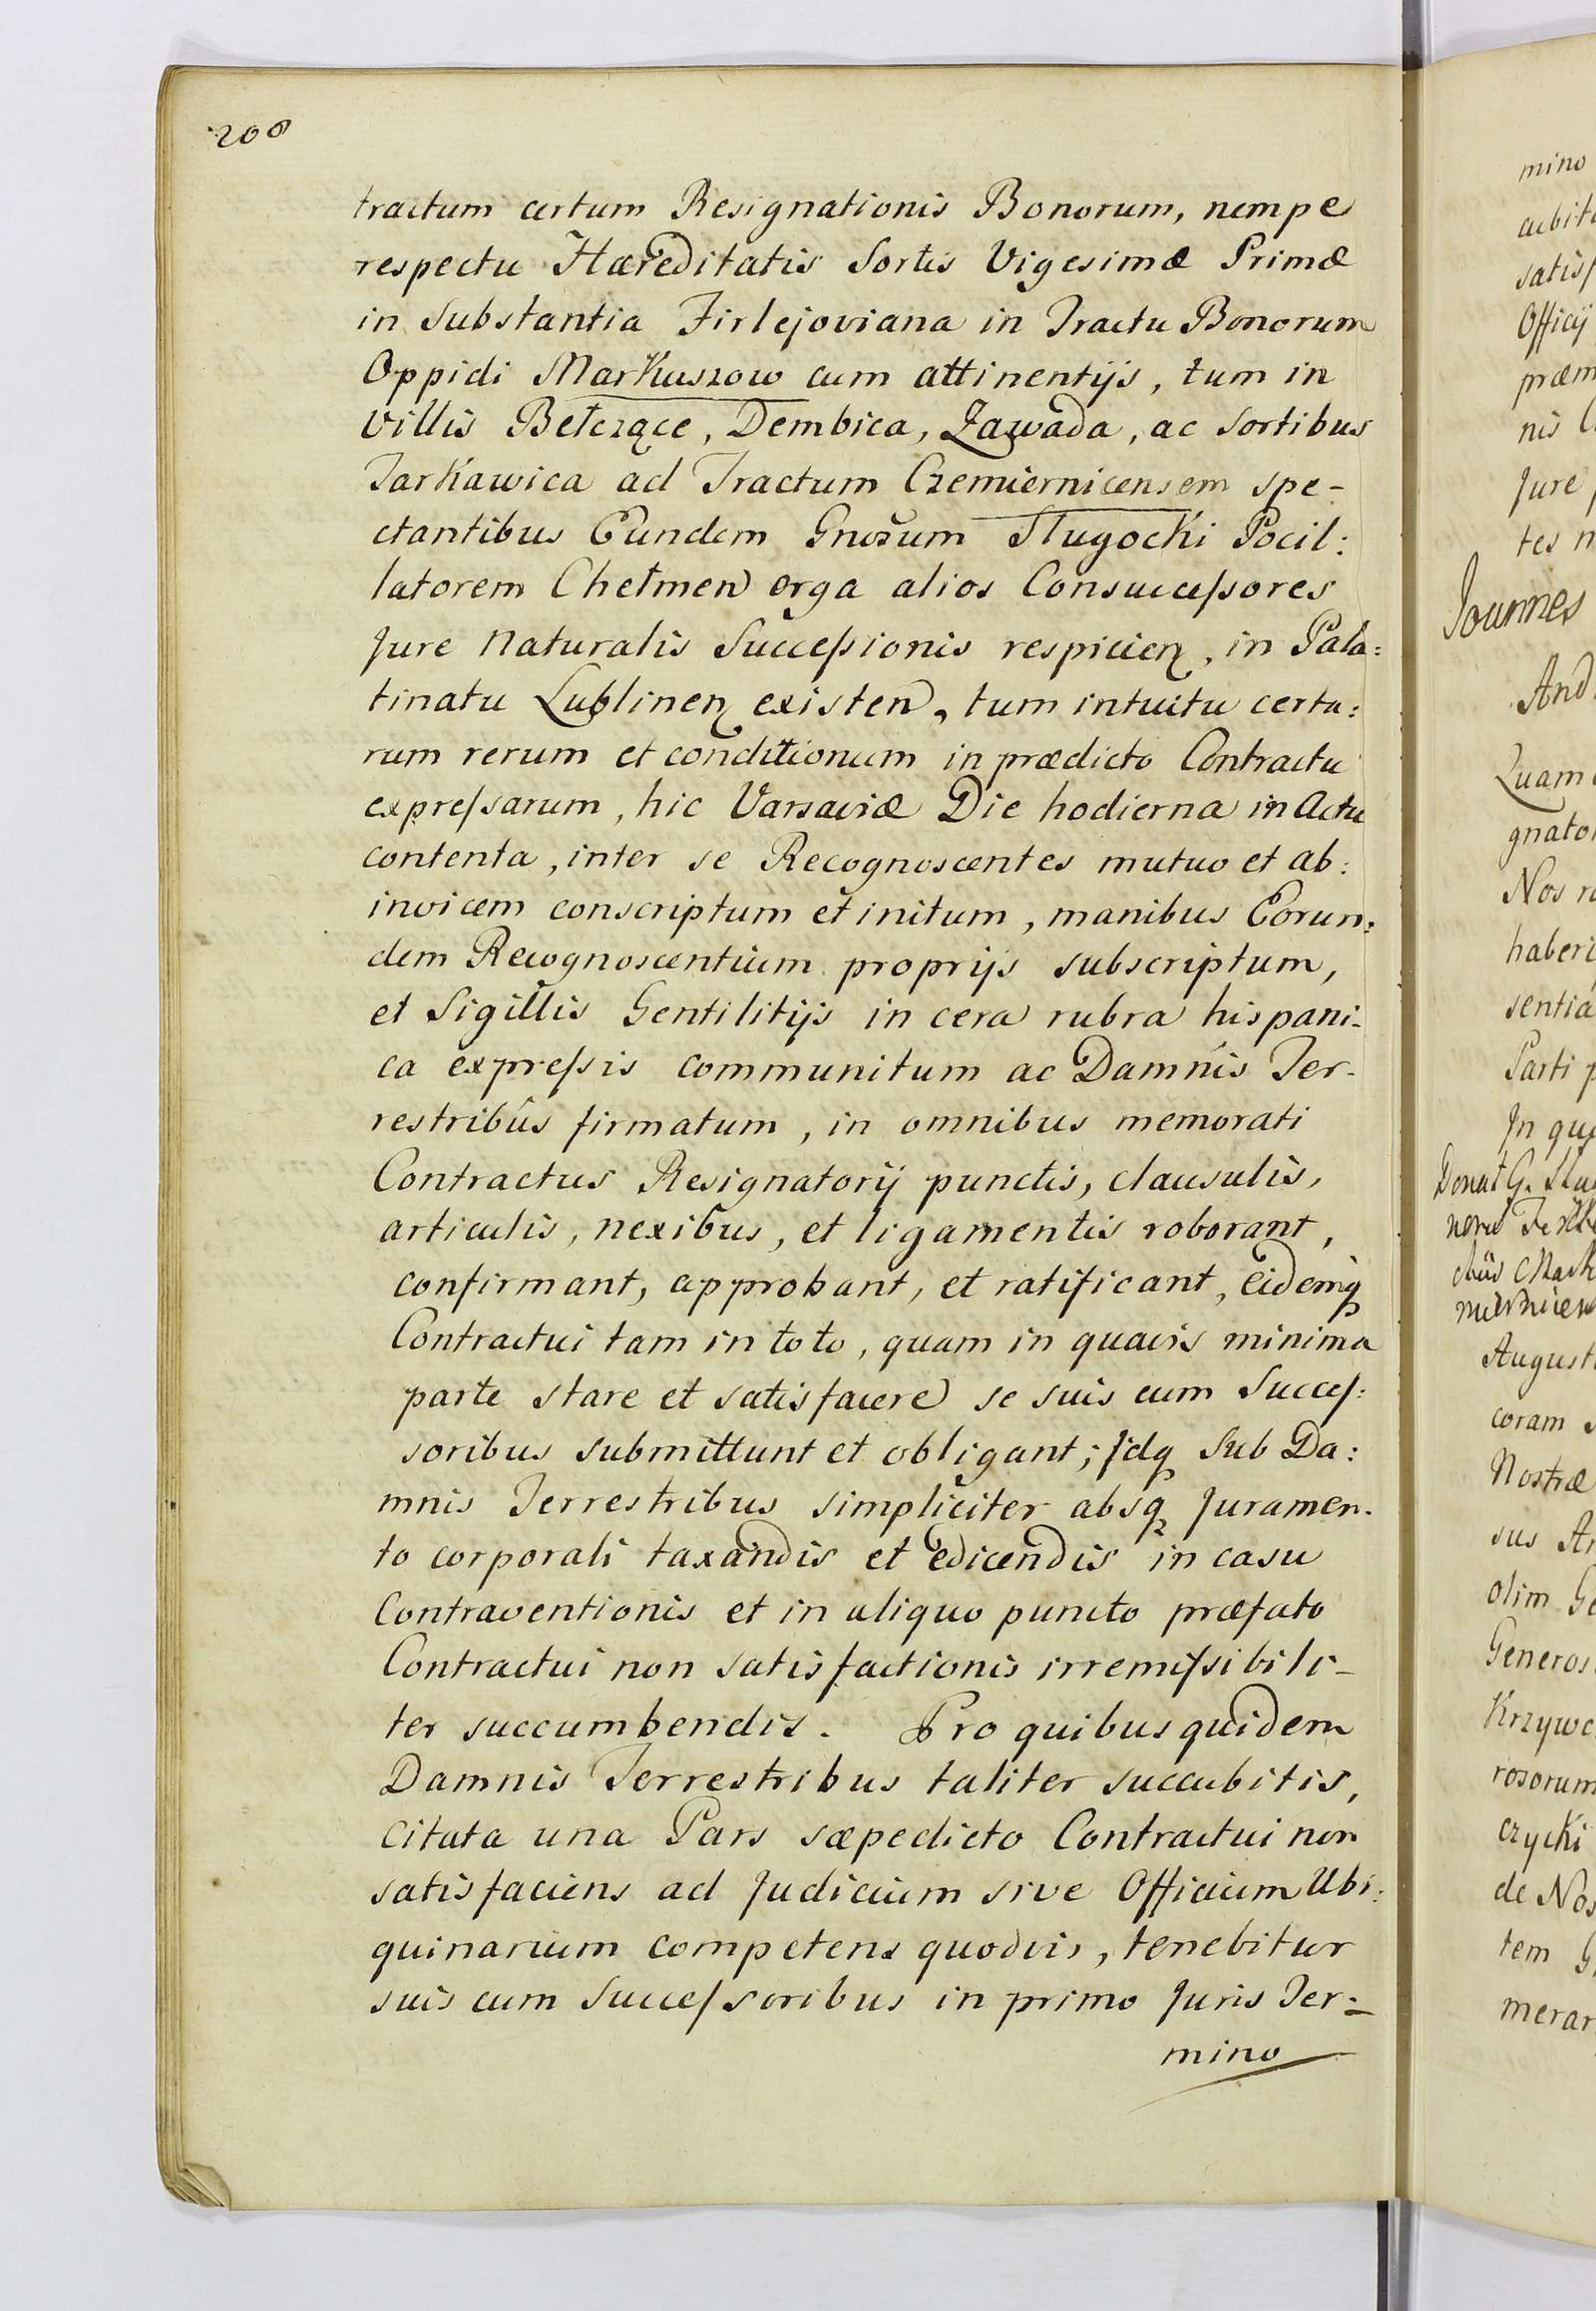 208
tractum certum Resignationis Bonorum, nempe
respectu Hæreditatis Sortis Vigesimæ Primæ
in Substantia Firlejoviana in Tractu Bonorum
Oppidi Markuszow cum attinentijs, tum in
Villis Bełczące, Dembica, Zawada, ac Sortibus
Tarkawica ad Tractum Czemiernicensem spe-
ctantibus Eundem Gnosum Sługocki Pocil:
latorem Chełmen erga alios Consuccessores
Jure Naturalis Successionis respicien, in Pala:
tinatu Lublinen existen, tum intuitu certa:
rum rerum et conditionum in prædicto Contractu
expressarum, hic Varsaviæ Die hodierna in Actu
contenta, inter se Recognoscentes mutuo et ab:
invicem conscriptum et initum, manibus Eorun:
dem Recognoscentium proprijs subscriptum,
et Sigillis Gentilitijs in cera rubra hispani-
ca expressis communitum ac Damnis Ter-
restribus firmatum, in omnibus memorati
Contractus Resignatorij punctis, clausulis,
articulis, nexibus, et ligamentis roborant,
confirmant, approbant, et ratificant, Eidemq
Contractui tam in toto, quam in quavis minima
parte stare et satisfacere se suis cum Succes:
soribus submittunt et obligant; Jdq Sub Da:
mnis Terrestribus simpliciter absq Juramen-
to corporali taxandis et edicendis in casu
Contraventionis et in aliquo puncto præfato
Contractui non satisfactionis irremissibili-
ter succumbendis. Pro quibus quidem
Damnis Terrestribus taliter succubitis,
Citata una Pars sæpedicto Contractui non
satisfaciens ad Judicium sive Officium Ubi:
quinarium competens quodvis, tenebitur
suis cum Successoribus in primo Juris Ter:
mino
mino
cubit
satisf
Officij
præm
nis
Jure
tes n
Joannes
And
Quam
gnato
Nos
haberi
sentia
Parti p
Jn qu
Donat G.
August
coram
Nostræ
sus A
olim
Generos
Krzywc
rosorum
czycki
de Nos
tem G
merar